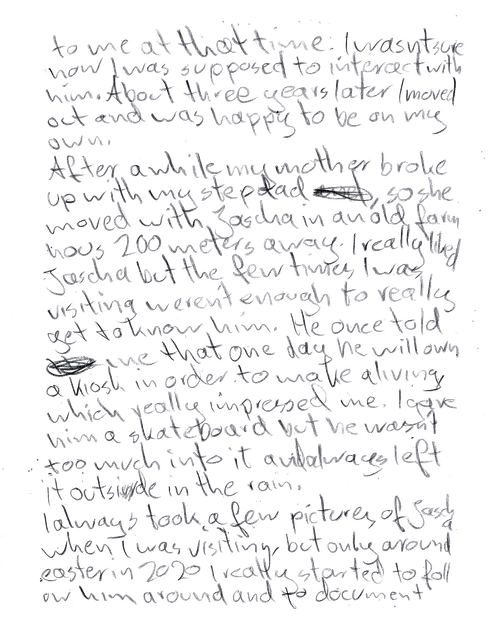 to me at that time. I wasn't sure
how I was supposed to interact with
him. About three years later I moved
out and was happy to be on my
own.
After a while my mother broke
up with my stepdad, so she
moved with Jascha in an old farm
hous 200 meters away. I really liked
Jascha but the few times I was
visiting weren't enough to really
get to know him. He once told
me that one day he will own
a kiosk in order to make a living
which really impressed me. I gave
him a skateboard but he wasn't
too much into it and always left
it outside in the rain.
I always took a few pictures of Jascha
when I was visiting, but only around
easter in 2020 I really started to foll
ow him around and to document